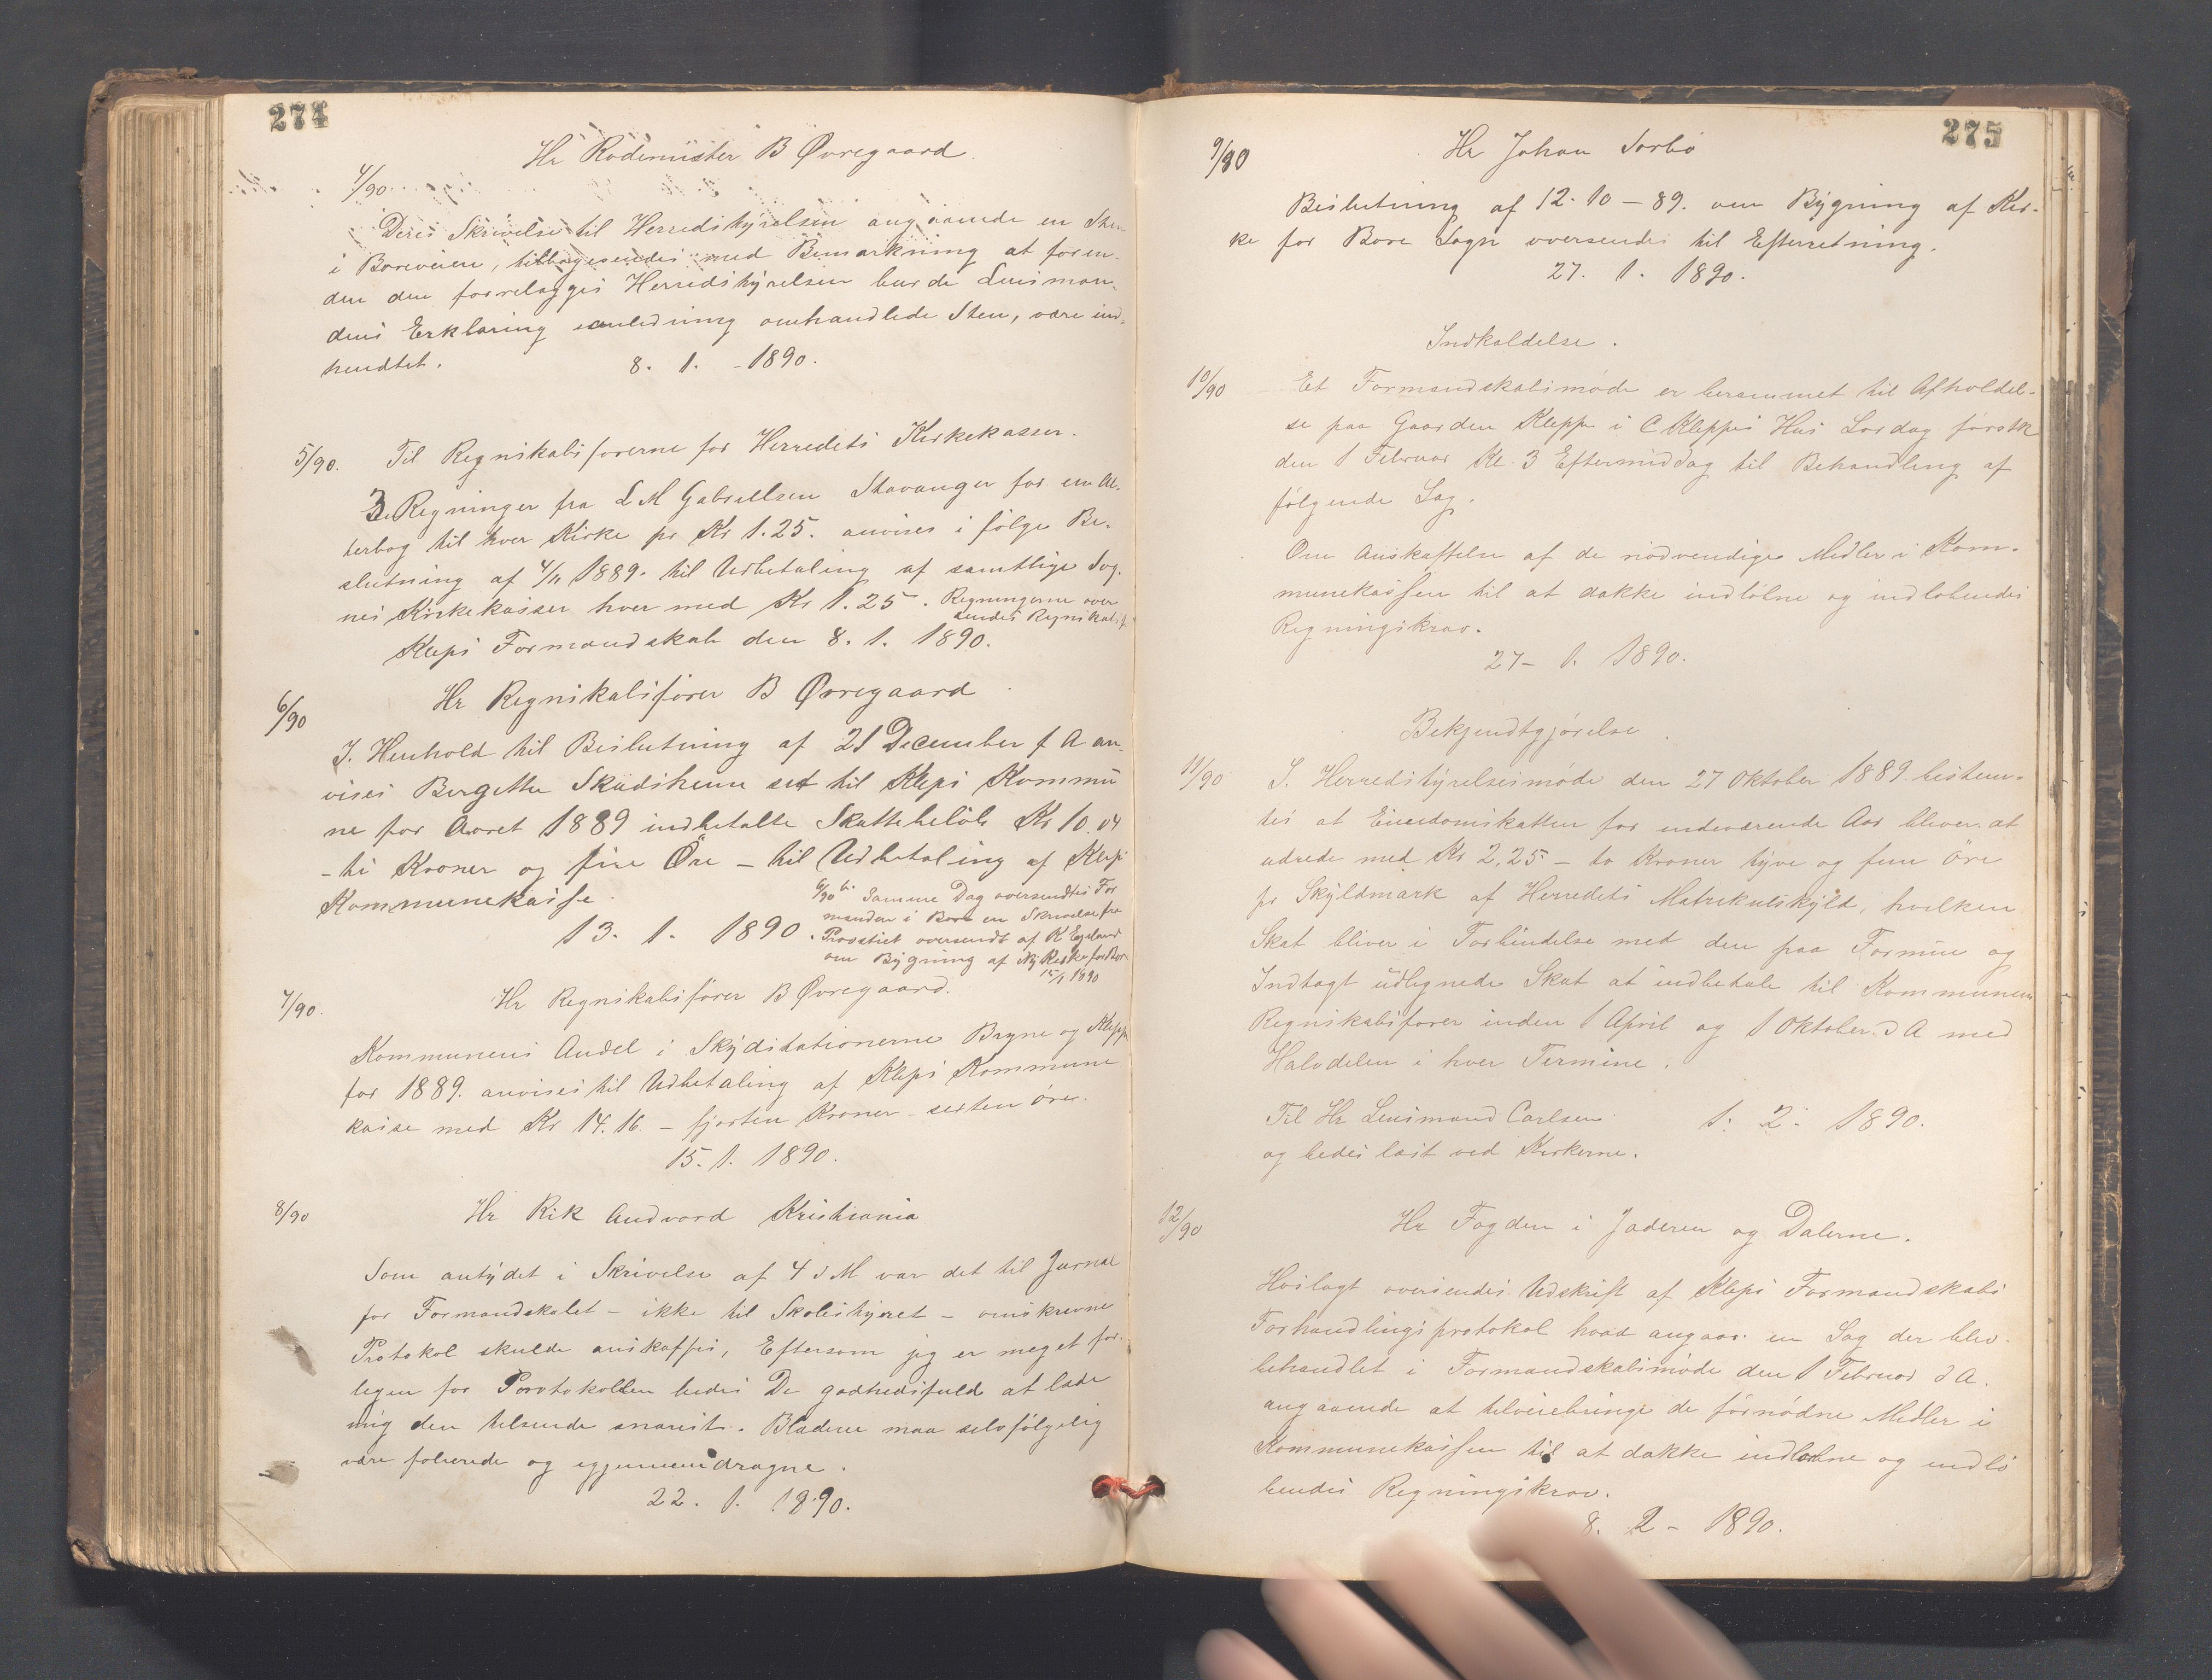 274
Hr Rodemester B Øvregaard.
4/90
Deres Skrivelse til Herredstyrelsen angaaende en Sten
i Boreveien, tilbagesendes med Bemærkning at foren-
den den forelægges Herredstyrelsen burde Lensman-
dens Erklæring anledning omhandlede Sten, være ind-
hendtet.
8. 1. - 1890.
5/90. Til Regnskabsførerne for Herredets Kirkekasser.
3 Regninger fra L M Gabrielsen Stavanger for en Al-
terbog til hver Kirke pr Kr 1.25. anvises i følge Be-
slutning af 4/11 1889. til Udbetaling af samtlige Sog-
nes Kirkekasser hver med Kr 1.25. Regningerne over
sendes Regnskabsf
Kleps Formandskab den 8. 1. 1890.
6/90
Hr Regnskabsfører B Øvregaard
I. Henhold til Beslutning af 21 December f A an-
vises Bergette Skadsheim set til Kleps Kommu
ne for Aaret 1889 indbetalte Skattebeløb Kr 10.04
- ti Kroner og fire Øre - til Udbetaling af Kleps
Kommunekasse.
13. 1. 1890.
6/90 b. Samme Dag oversendtes For
manden i Bore en Skrivelse fra
Provstiet oversendt af K Egeland
om Bygning af Ny Kirke for Bore
15/1 1890
7/90.
Hr Regnskabsfører B Øvregaard.
Kommunens Andel i Skydsstationerne Bryne og Klepp
for 1889. anvises til Udbetaling af Kleps Kommune
kasse med Kr 14.16. - fjorten Kroner sexten øre.
15. 1. 1890.
8/90
Hr Rik Andvord Kristiania
Som antydet i Skrivelse af 4 d M var det til Jurnal
for Formandskabet - ikke til Skolestyret - omskrevne
Protokol skulde anskaffes, Eftersom jeg er meget for-
legen for Porotokollen bedes De godhedsfuld at lade
mig den tilsende snarest. Bladene maa selvfølgelig
være folierede og igjennemdragne.
22. 1. 1890.
275
9/90
Hr Johan Sørbø
Beslutning af 12. 10 - 89. om Bygning af Kir-
ke for Bore Sogn oversendes til Efterretning.
27. 1. 1890.
Indkaldelse.
10/90 Et Formandskabsmøde er berammet til Afholdel-
se paa Gaarden Klepp i C Klepps Hus Lørdag førstk
den 1 Februar Kl. 3 Eftermiddag til Behandling af
følgende Sag.
Om Anskaffelse af de nødvendige Midler i Kom-
munekassen til at dække indløbne og indløbendes
Regningskrav.
27 - 1. 1890.
Bekjendtgjørelse.
11/90 I. Herredstyrelsesmøde den 27 Oktober 1889. bestem-
tes at Eiendomskatten for indeværende Aar bliver at
udrede med Kr 2,25 - to Kroner tyve og fem Øre
pr Skyldmark af Herredets Matrikulskyld, hvilken
Skat bliver i Forbindelse med den paa Formue og
Indtægt udlignede Skat at indbetale til Kommunens
Regnskabsfører inden 1 April og 1 Oktober. d A med
Halvdelen i hver Termine.
Til Hr Lensmand Carlsen
1. 2. 1890.
og bedes læst ved Kirkerne.
12/90
Hr Fogden i Jæderen og Dalerne.
Hoslagt oversendes Udskrift af Kleps Formandskabs
Forhandlingsprotokol hvad angaar en Sag der blev
behandlet i Formandskabsmøde den 1 Februar d A.
angaaende at tilveiebringe de fornødne Midler i
Kommunekassen til at dække indløbne og indlø
bendes Regningskrav.
8. 2 - 1890.